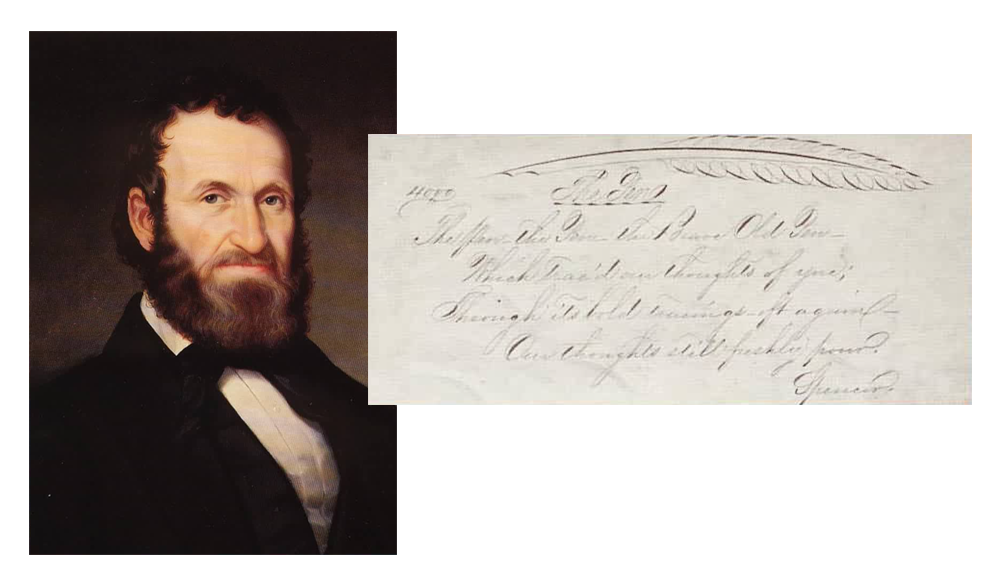 The Pen
The Pen the Pen the Brave Old Pen
Which trac'd our thoughts of yore;
Through its bold tracings oft again
Our thoughts still freshly pour.
Spencer